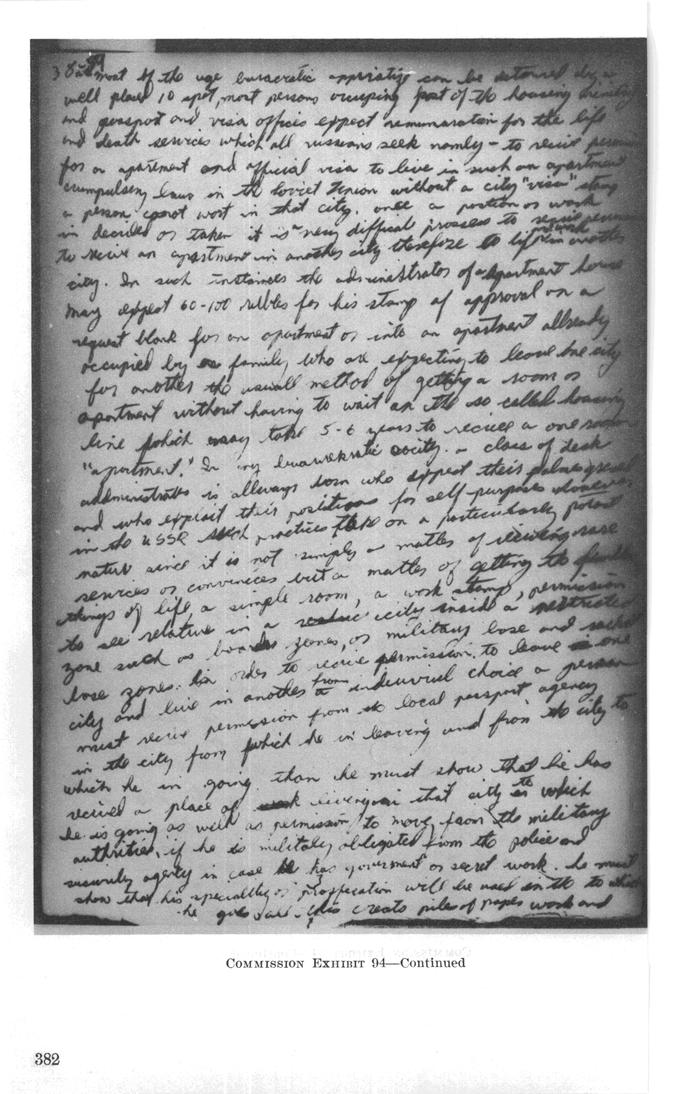 most of the uge buracratic appriatis can be detoured by a
well placed 10 spot, most persons occuping part of the housing
and passport and visa offices expect remunaration for the life
and death services which all russians seek namly - to recive
for an apartment and official visa to live in such an apartment
crumpulsery laws in the Soviet Union without a city "visa" stamp
a person canot work in that city. once a portion or work
in decided or taken it is a very diffical prosses to
to recive an apartment in another city therefore to
city. In such instances the administrator of apartment house
may expect 60-100 rubles for his stamp of approval on a
request blank for an apartment or into an apartment allready
occupied by a family who are expecting to leave one city
for another the usuall method of getting a room or
apartment without having to wait on the so called housing
line which may take 5-6 years to recieve a one room
"apartment." In any burawkratic socity a class of desk
administrates is allways born who expect their palms greased
and who exploit their positions for self purposes however
in the USSR such practices take on a particularly potent
nature since it is not simply a matter of viewing rare
services or convinices but a matter of getting the
things of life, a simple room, a work stamp, permission
to see relative in a city inside a restricted
zone such as boarder zones, or military base and
base zones. In order to recive permission to leave one
city and live in another from indeuvirul choice a person
must recive permission from the local passport agency
in the city from which he in leaving and from the city to
which he in going. than he must show that he has
recived a place of in that city in which
he is going as well as permission to move from the military
authrities, if he is militaly obligated from the police and
sicuruly agenty in case he has goverment or secret work. he must
show that his specialtly or proffication will be used in the to which
he goes and this creats piles of paper work and
COMMISSION EXHIBIT 94—Continued
382